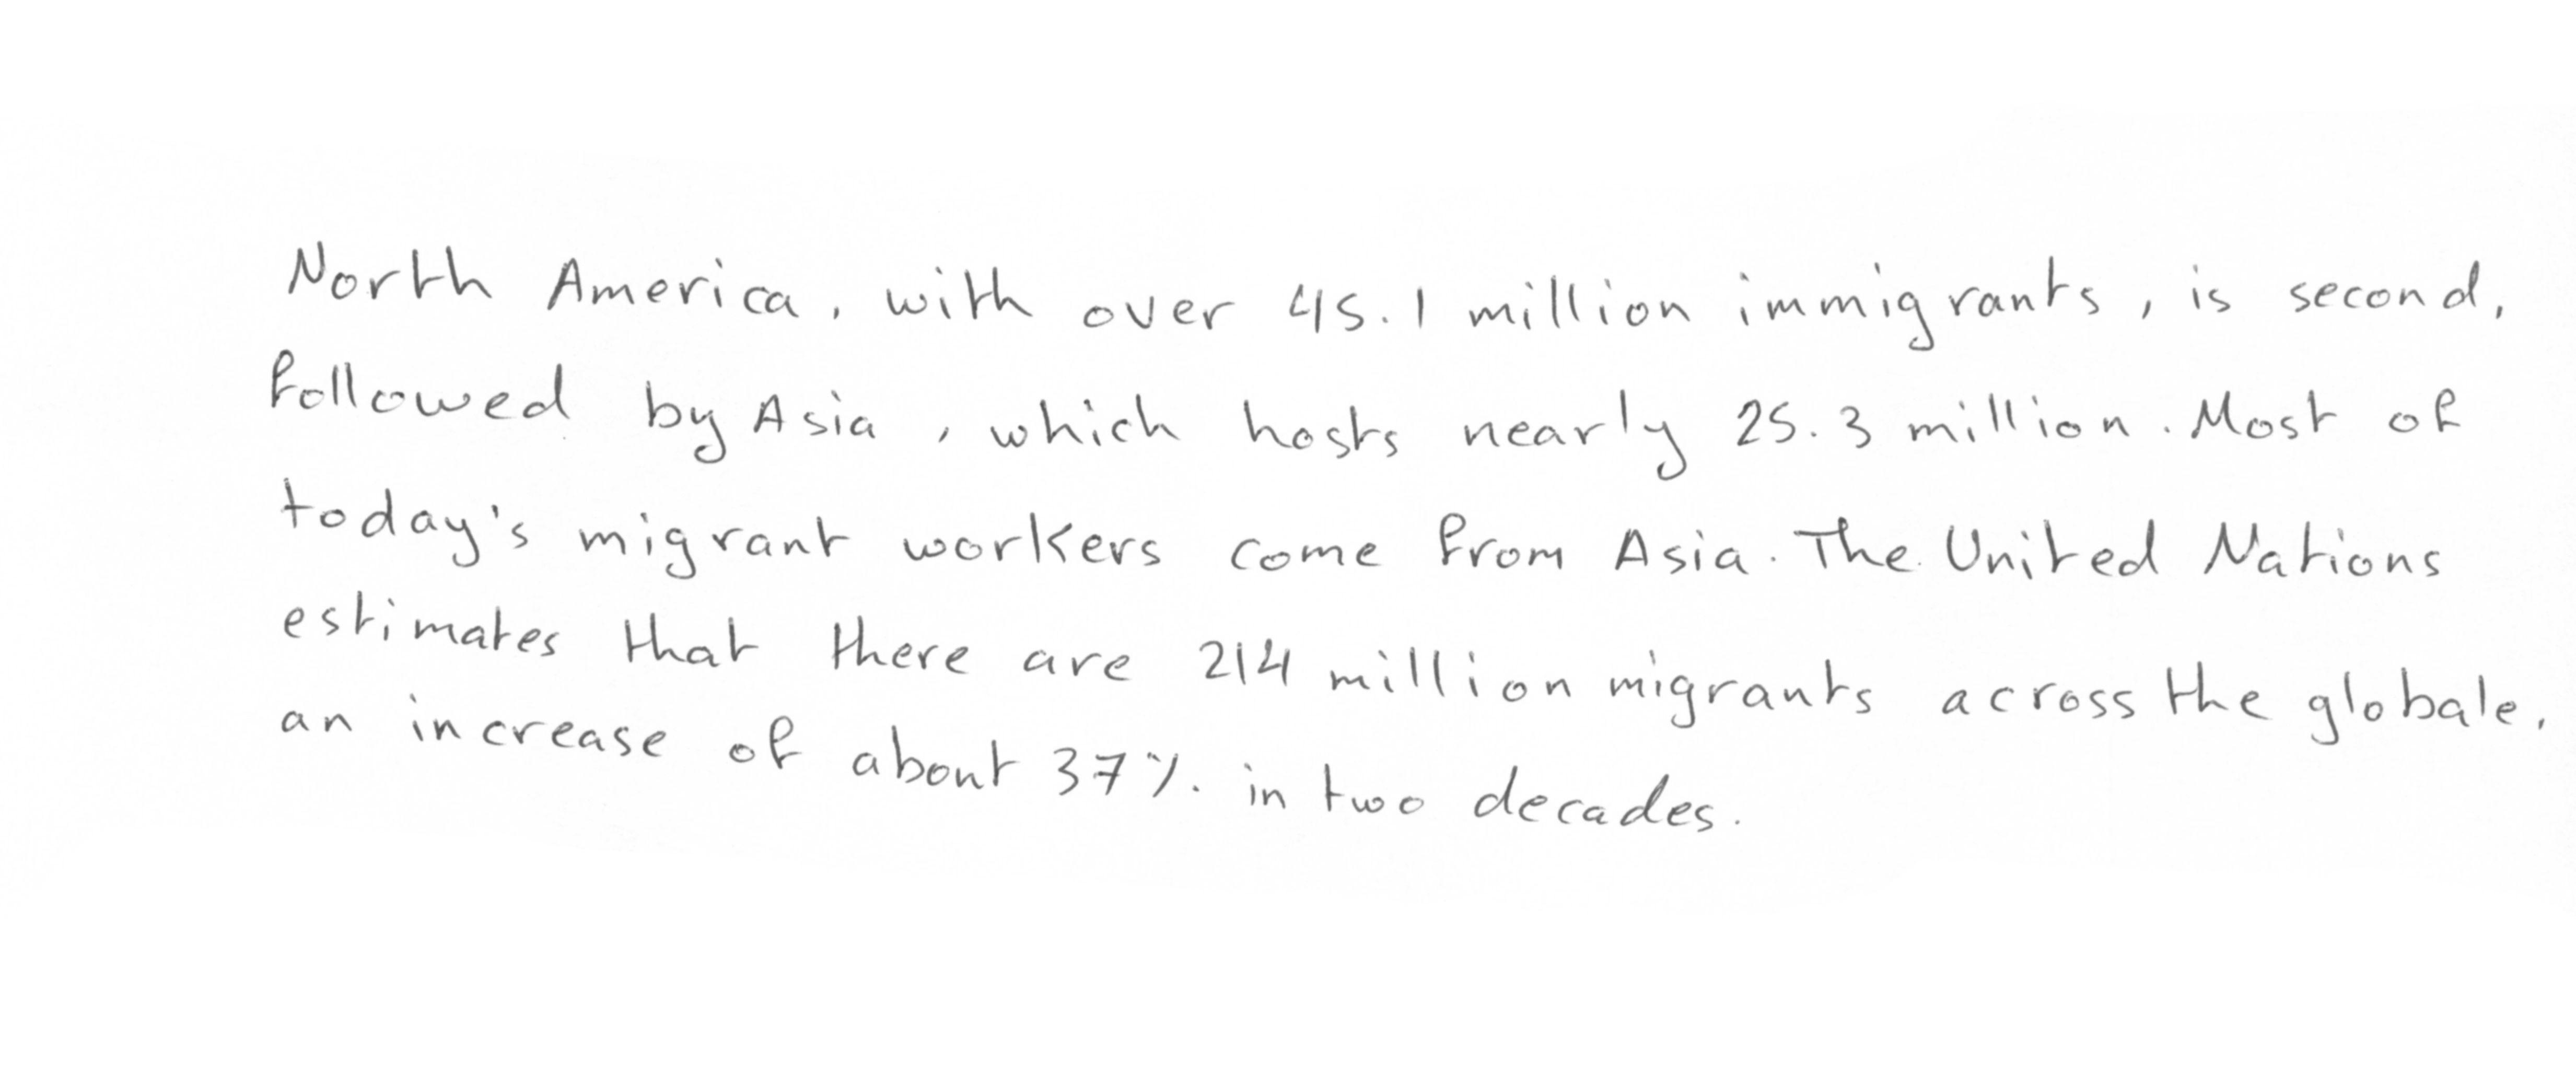 North America, with over 45.1 million immigrants, is second,
followed by Asia, which hosts nearly 25.3 million. Most of
today's migrant workers come from Asia. The United Nations
estimates that there are 214 million migrants across the globale,
an increase of about 37% in two decades.